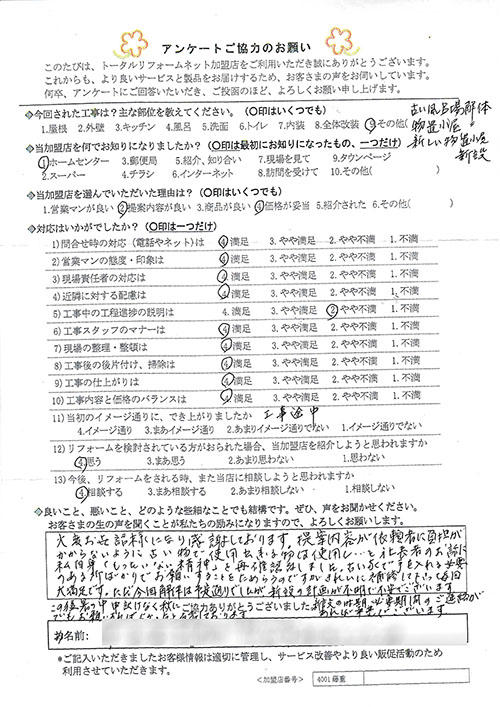 アンケートご協力のお願い
このたびは、トータルリフォームネット加盟店をご利用いただき誠にありがとうございます。
これからも、より良いサービスと製品をお届けするため、お客さまの声をお伺いしています。
何卒、アンケートにご回答いただき、ご投函のほど、よろしくお願い申し上げます。
◆今回された工事は？主な部位を教えてください。（〇印はいくつでも）
1.屋根 2.外壁 3.キッチン 4.風呂 5.洗面 6.トイレ 7.内装 8.全体改装 9.その他(
古い風呂場解体
物置小屋〃
新しい物置小屋
新設
◆当加盟店を何でお知りになりましたか？（〇印は最初にお知りになったもの、一つだけ）
1.ホームセンター 3.郵便局 5.紹介、知り合い 7.現場を見て 9.タウンページ
2.スーパー 4.チラシ 6.インターネット 8.訪問を受けて 10.その他( )
◆当加盟店を選んでいただいた理由は？（〇印はいくつでも）
1.営業マンが良い 2.提案内容が良い 3.商品が良い 4.価格が妥当 5.紹介された 6.その他( )
◆対応はいかがでしたか？（〇印は一つだけ）
1)問合せ時の対応（電話やネット）は 4.満足 3.やや満足 2.やや不満 1.不満
2)営業マンの態度・印象は 4.満足 3.やや満足 2.やや不満 1.不満
3)現場責任者の対応は 4.満足 3.やや満足 2.やや不満 1.不満
4)近隣に対する配慮は 4.満足 3.やや満足 2.やや不満 1.不満
5)工事中の工程進捗の説明は 4.満足 3.やや満足 2.やや不満 1.不満
6)工事スタッフのマナーは 4.満足 3.やや満足 2.やや不満 1.不満
7)現場の整理・整頓は 4.満足 3.やや満足 2.やや不満 1.不満
8)工事後の後片付け、掃除は 4.満足 3.やや満足 2.やや不満 1.不満
9)工事の仕上がりは 4.満足 3.やや満足 2.やや不満 1.不満
10)工事内容と価格のバランスは 4.満足 3.やや満足 2.やや不満 1.不満
11)当初のイメージ通りに、でき上がりましたか 工事途中
4.イメージ通り 3.まあイメージ通り 2.あまりイメージ通りでない 1.イメージ通りでない
12)リフォームを検討されている方がおられた場合、当加盟店を紹介しようと思われますか
4.思う 3.まあ思う 2.あまり思わない 1.思わない
13)今後、リフォームをされる時、また当店に相談しようと思われますか
4.相談する 3.まあ相談する 2.あまり相談しない 1.相談しない
◆良いこと、悪いこと、どのような些細なことでも結構です。ぜひ、声をお聞かせください。
お客さまの生の声を聞くことが私たちの励みになりますので、よろしくお願いします。
大変お世話様になり感謝しております。提案内容が依頼者に負担が
かからないように古い物で使用出来る物は使用し…と社長者のお話に
私自身「もったいない精神」を再確認
大満足です。ただ今回解体は
ご協力ありがとうございました
お名前:
*ご記入いただきましたお客様情報は適切に管理し、サービス改善やより良い販促活動のため
利用させていただきます。
＜加盟店番号＞ 4001藤重